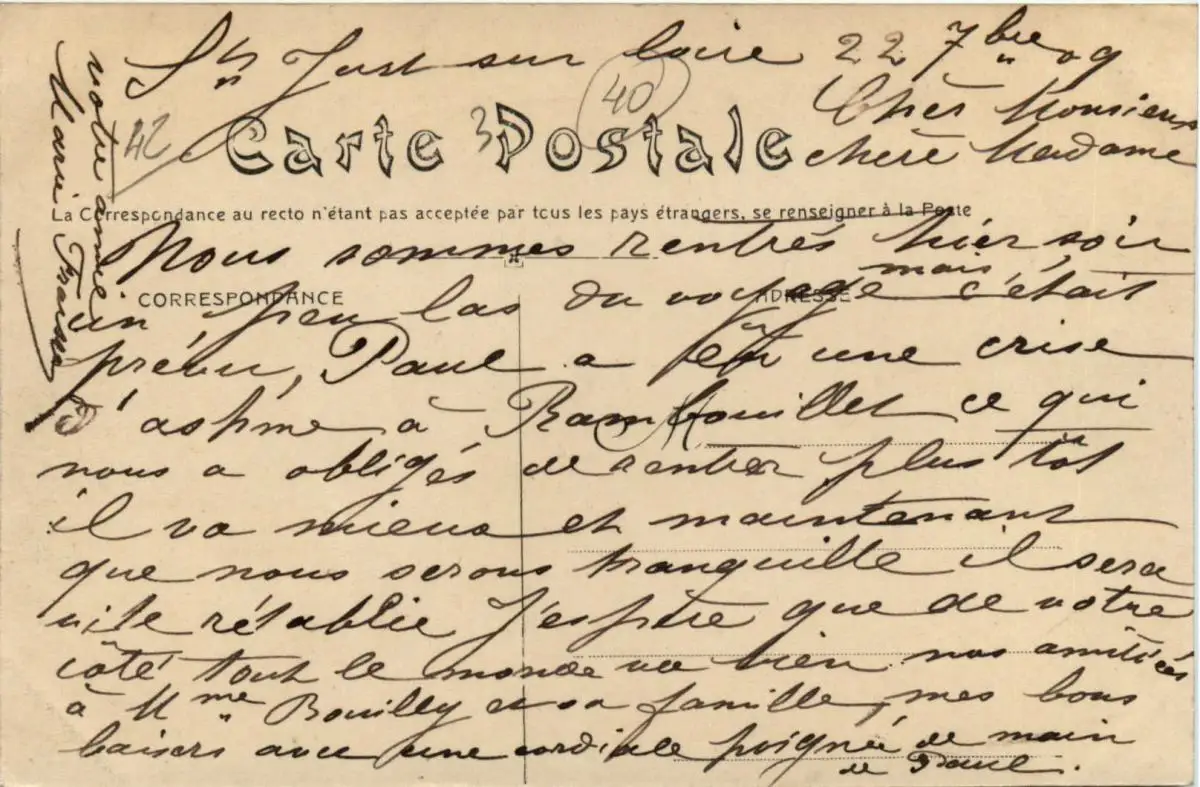 St Just sur loire 22 7bre 09
Cher Monsieur
chère Madame
42
3
40
Carte Postale
La Correspondance au recto n'étant pas acceptée par tous les pays étrangers, se renseigner à la Poste
Nous sommes rentrés hier soir
CORRESPONDANCE
ADRESSE
un peu las du voyage mais c'était
prévu, Paul a eu une crise
d'asthme à Rambouillet ce qui
nous a obligés de rentrer plus tôt
il va mieux et maintenant
que nous serons tranquille il sera
vite rétablie J'espère que de votre
côté tout le monde va bien nos amitiées
à Mme Bouilly et sa famille, mes bons
baisers avec une cordiale poignée de main
de Paul.
votre amie
Marie